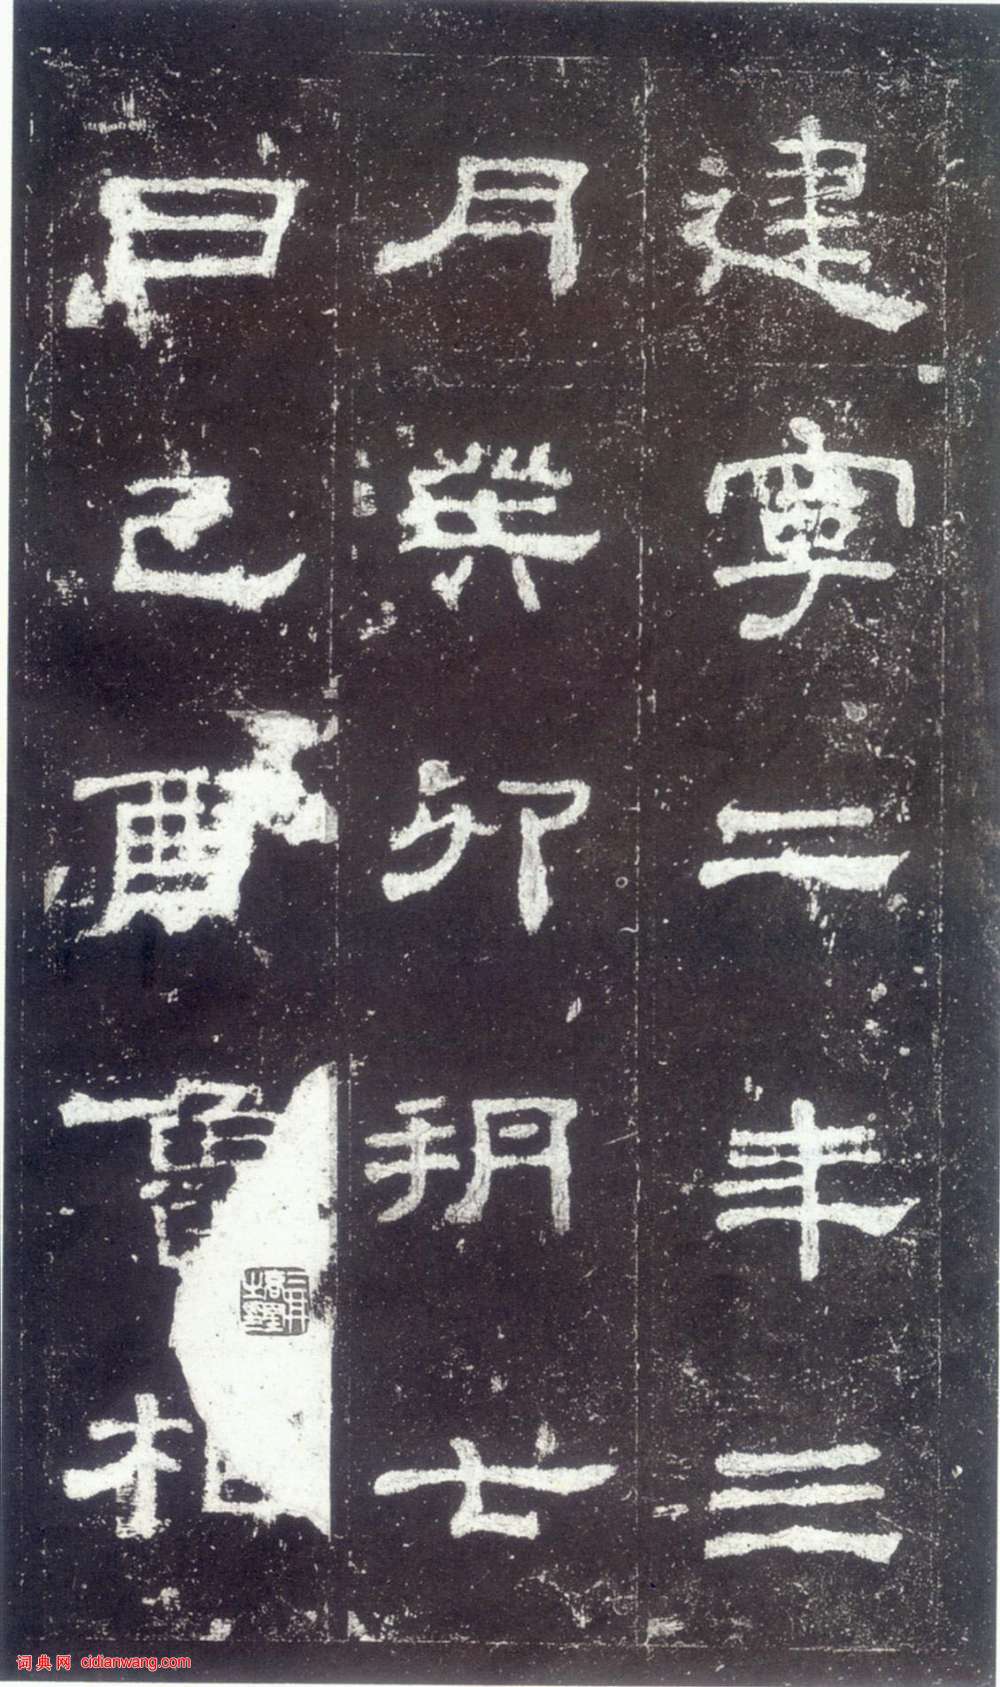 建寧二年三
月癸卯朔七
日己酉魯相
词典网 cidianwang.com